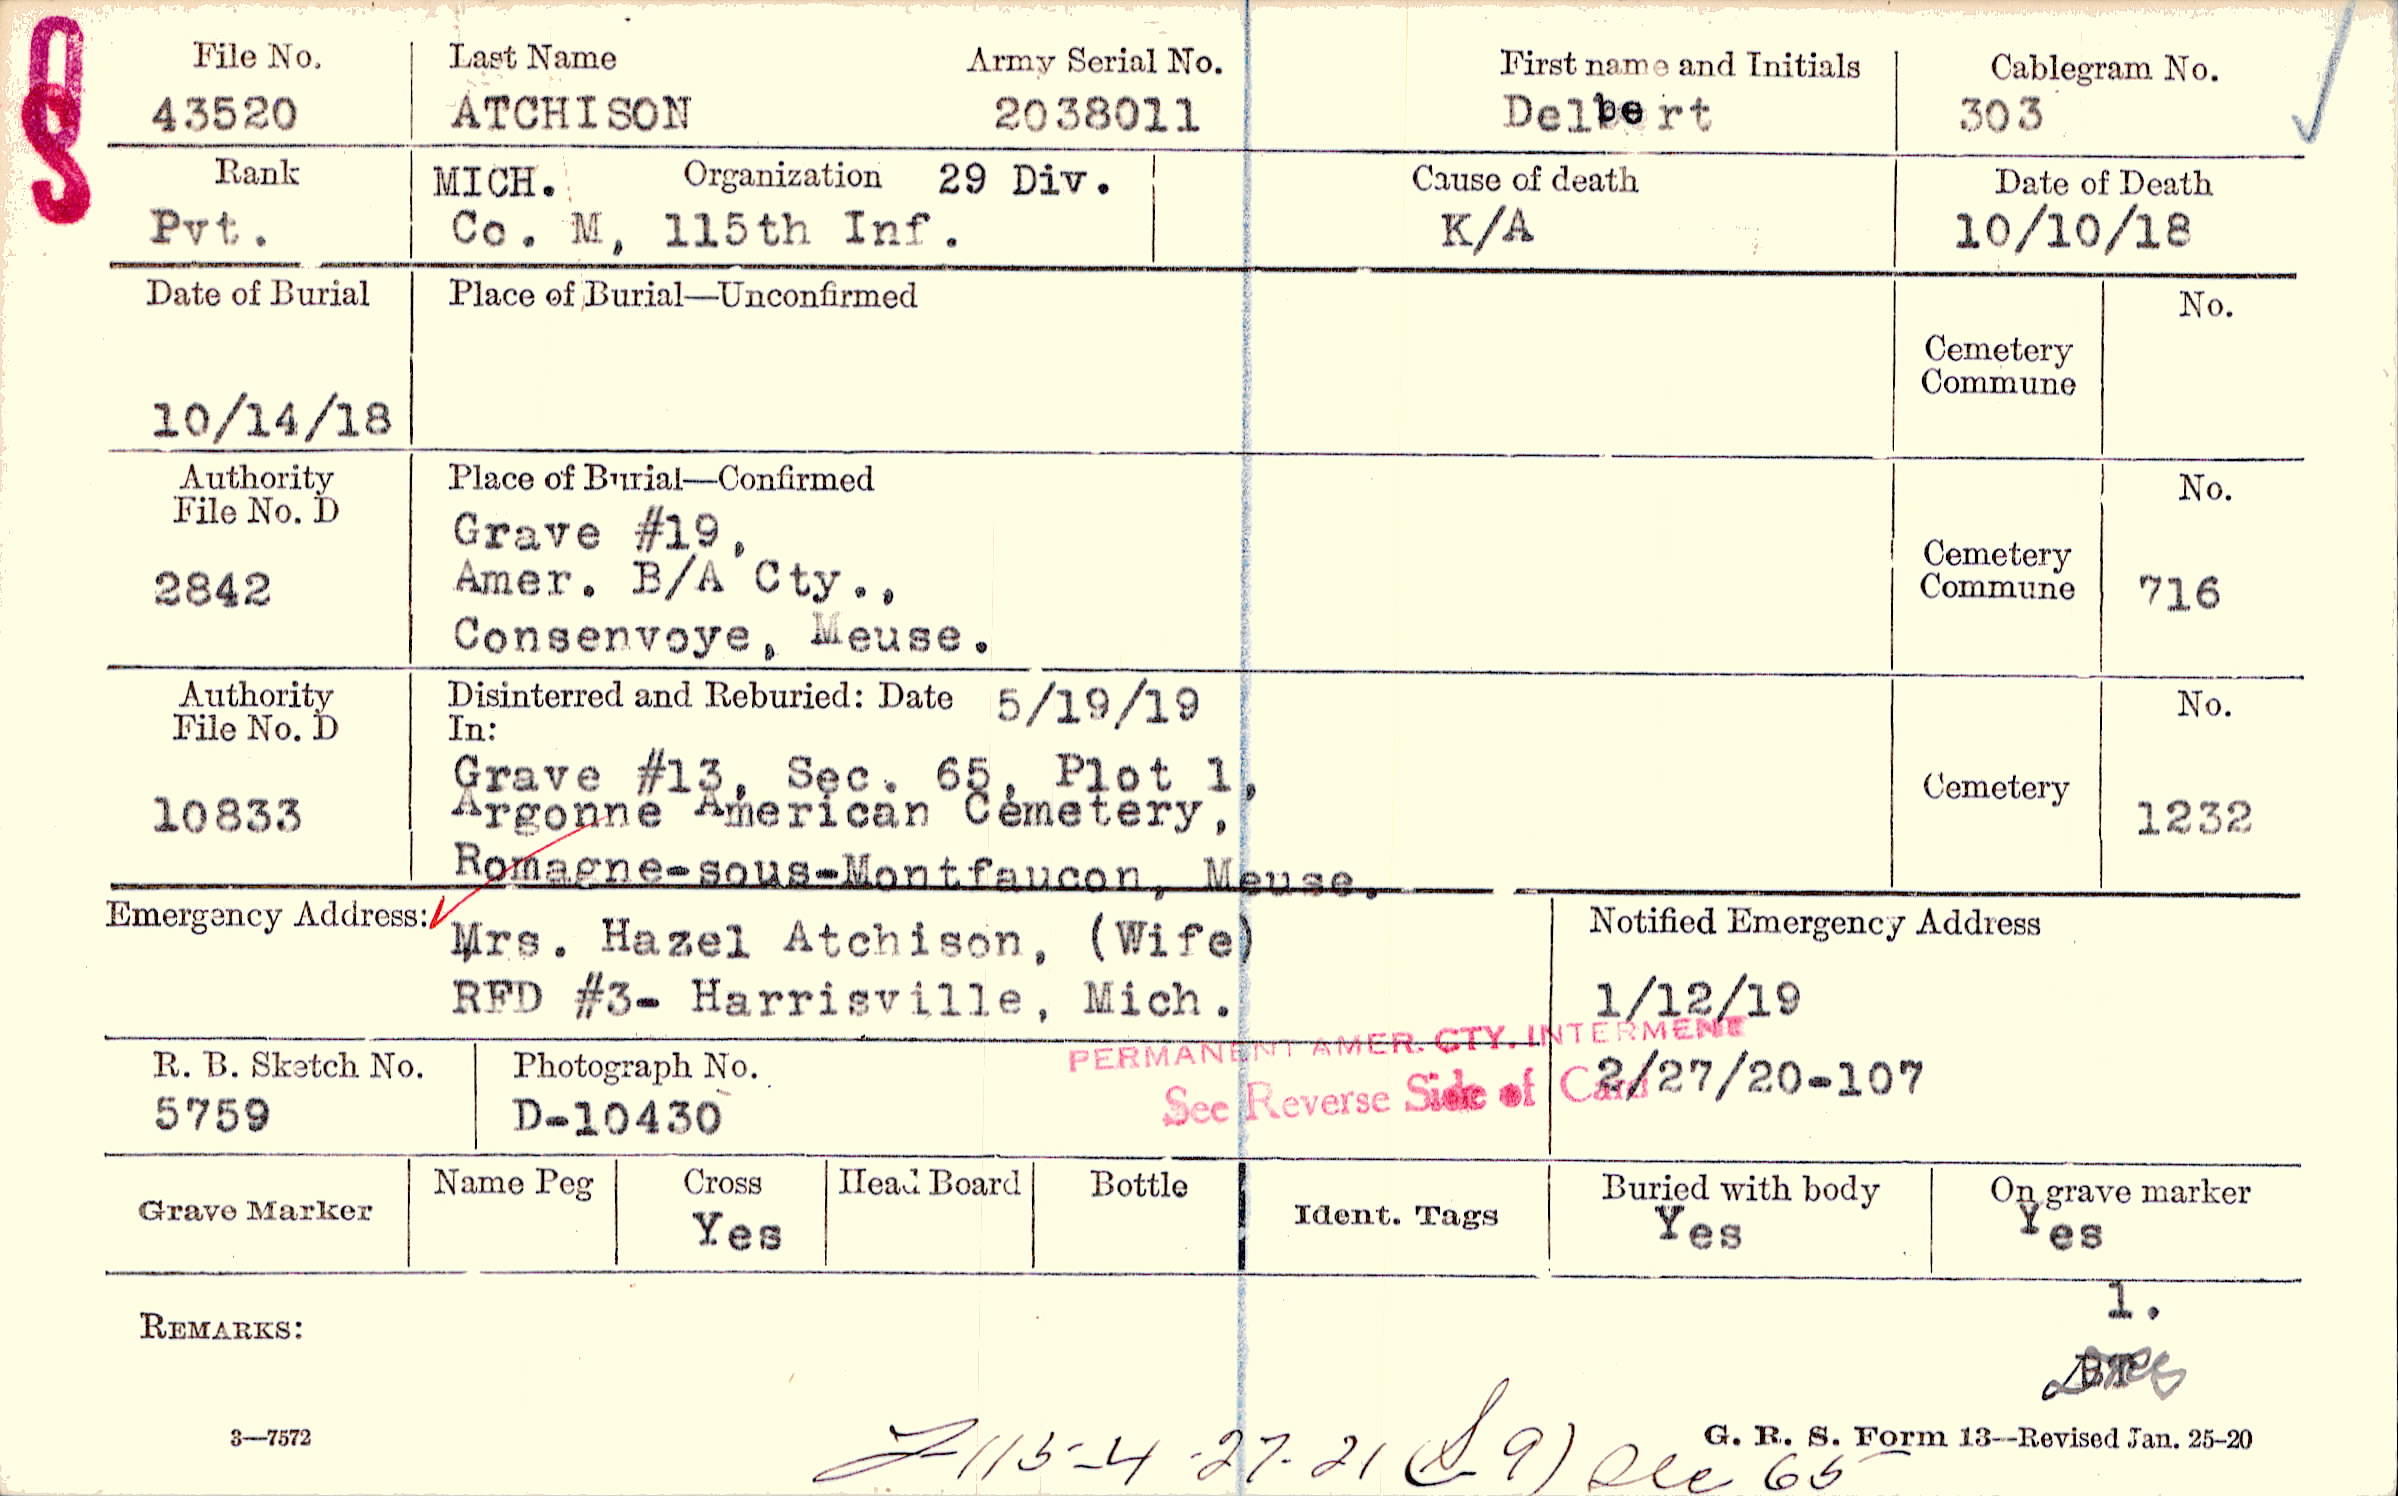 File No. Last Name Army Serial No. First name and Initials Cablegram No.
43520 ATCHISON 2038011 Delbert 303
Rank MICH. Organization 29 Div. Cause of death Date of Death
Pvt. Co. M, 115th Inf. K/A 10/10/18
Date of Burial Place of Burial—Unconfirmed No.
Cemetery
Commune
10/14/18
Authority Place of Burial—Confirmed No.
File No. D
Grave #19,
2842 Amer. B/A Cty., Cemetery
Commune 716
Consenvoye, Meuse.
Authority Disinterred and Reburied: Date 5/19/19 No.
File No. D In:
Grave #13, Sec. 65, Plot 1, Cemetery
10833 Argonne American Cemetery, 1232
Romagne-sous-Montfaucon, Meuse.
Emergency Address: Mrs. Hazel Atchison, (Wife) Notified Emergency Address
RFD #3- Harrisville, Mich. 1/12/19
PERMANENT AMER. CTY. INTERMENT
R. B. Sketch No. Photograph No. 2/27/20-107
5759 D-10430 See Reverse Side of Card
Grave Marker Name Peg Cross Head Board Bottle Ident. Tags Buried with body On grave marker
Yes Yes Yes
1.
REMARKS:
3—7572 G. R. S. Form 13—Revised Jan. 25-20
115-4-27-21 9) Sec 65